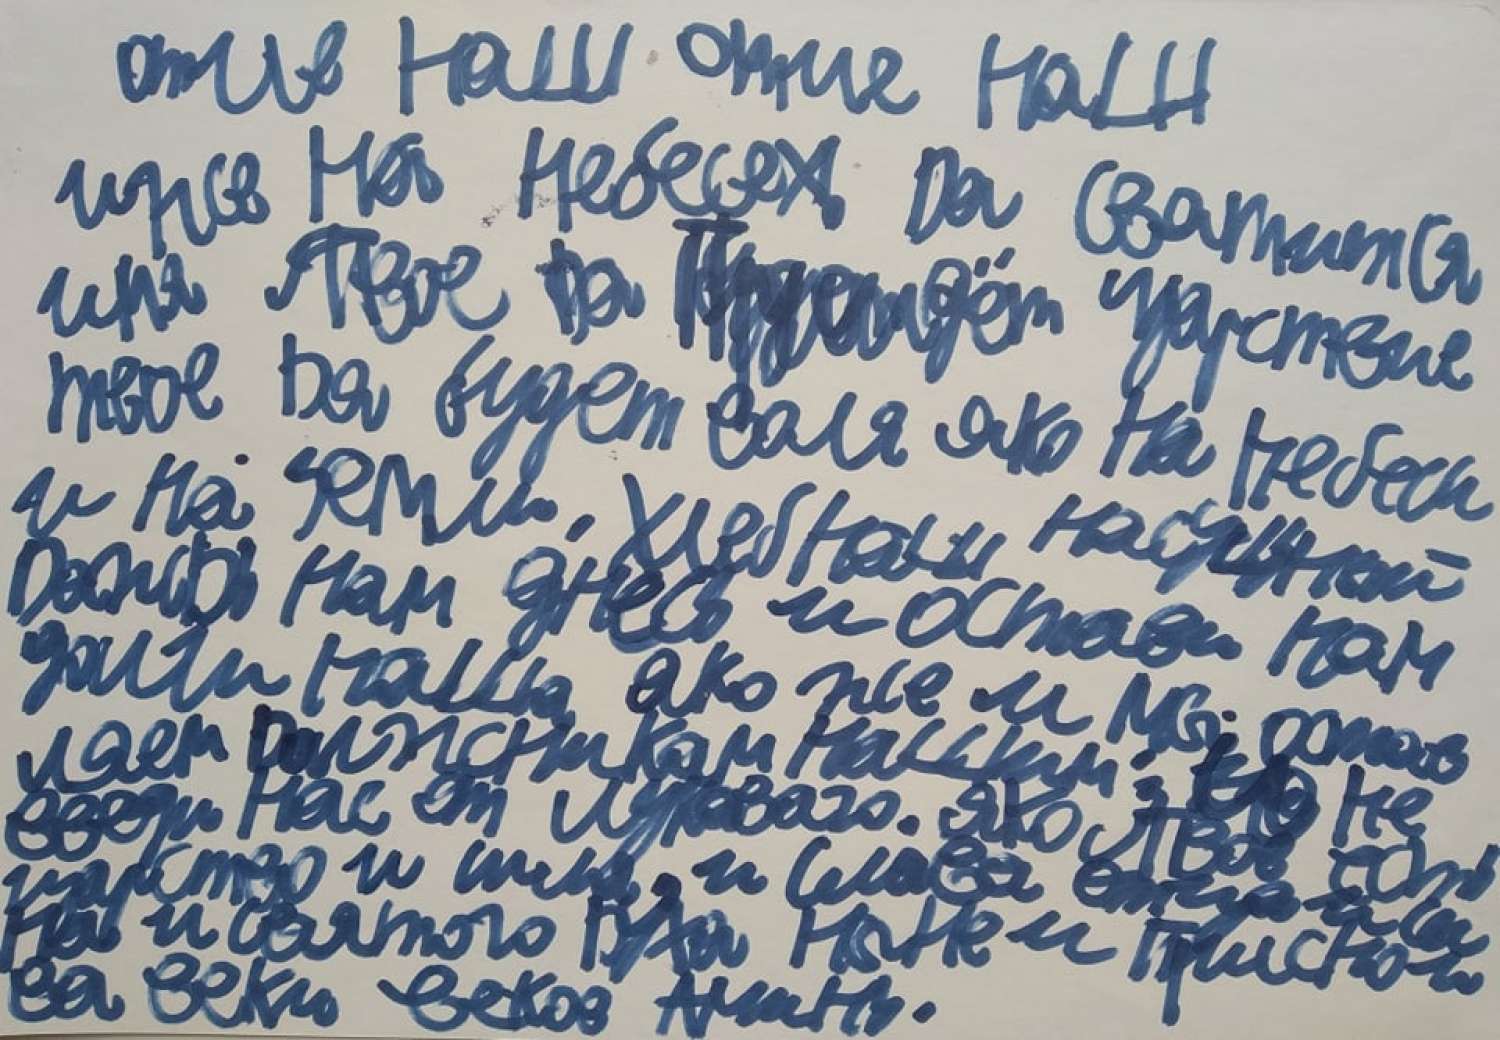 отче наш отче наш
иже на небесех да сватится
имя Твое да придёт царствие
твое да будет воля яко на небеси
и на земли. хлеб наш насущный
даждь нам днесь и остави нам
долги наши яко же и мы остав
ляем должникам нашим. и не
введи нас от лукаваго. яко Твое есть
царство и сила и слава отца и сы
на и святого Духа ныне и присно и
ва веки веков Аминь.